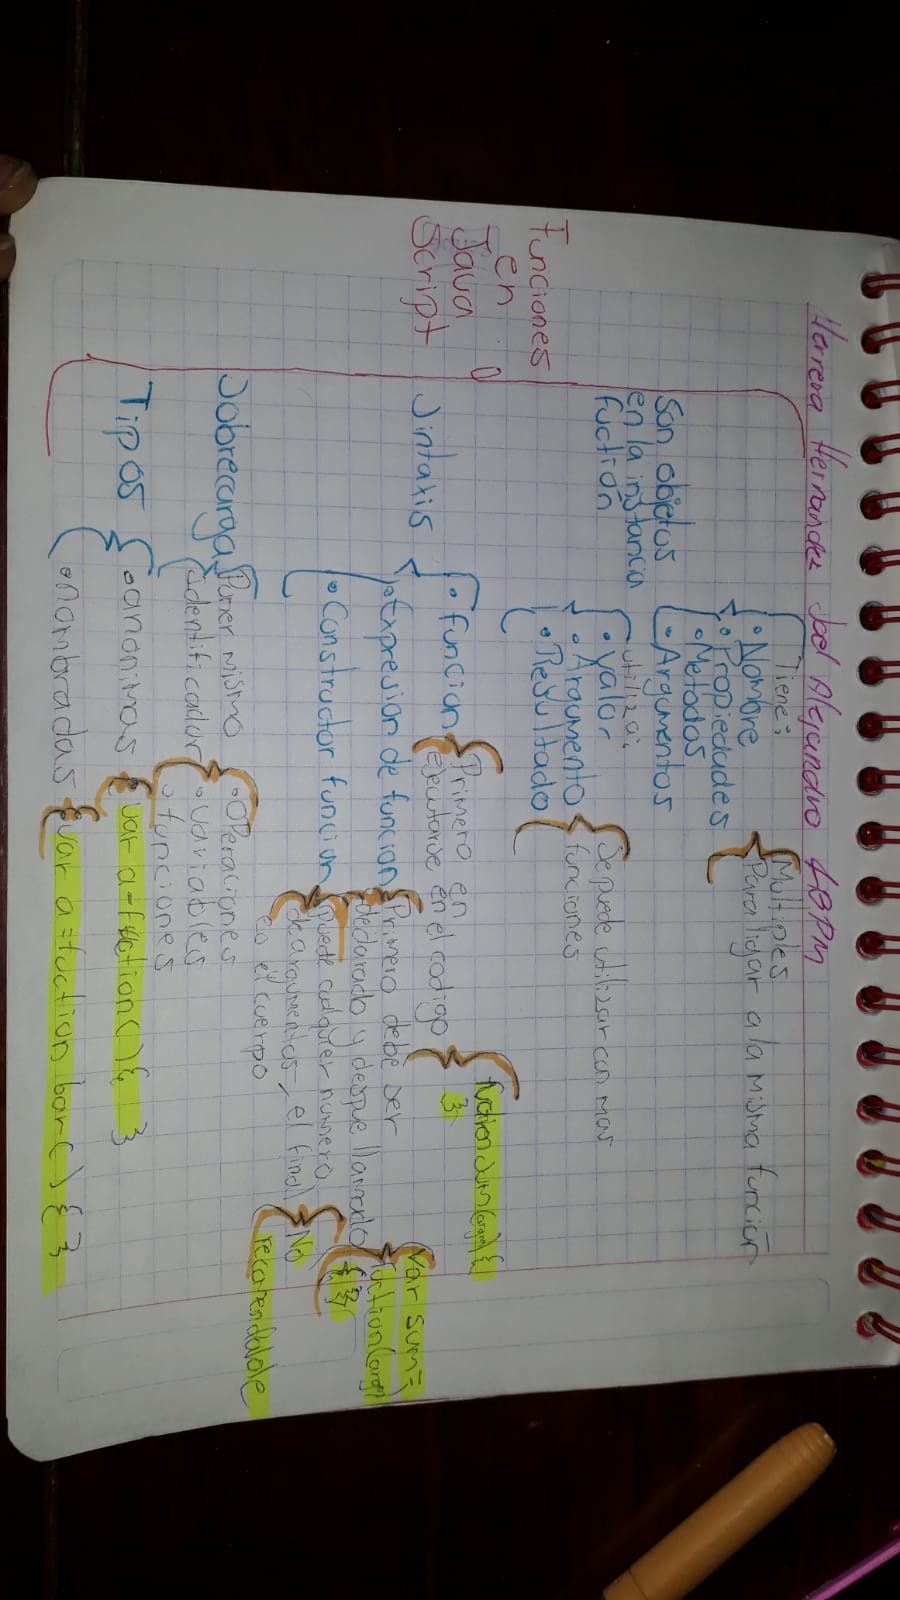 Herrera Hernandez Joel Alejandro 4BPM
Funciones
en
Java
Script
Son objetos
en la instancia
fuction
Tiene:
• Nombre
• Propiedades
• Metodos
• Argumentos
Multiples
Para ligar a la misma función
utiliza:
• Valor
• Araumento
• Resultado
Se puede utilizar con mas
funciones
Sintaxis
• funcion
Primero en
ejecutarse en el codigo
fuction sum(
}
• Expresion de funcion
Primero debe ser
declarado y despue llamado
Var sum=
fuction(
{ }
• Constructor funcion
puede
numero
de argumentos, el final
es el cuerpo
No
recomendable
Sobrecarga
Poner mismo
identificador
• Operaciones
• variables
• funciones
Tipos
• anonimas
var a=fuction(){ }
• nombradas
var a=fuction bar() { }